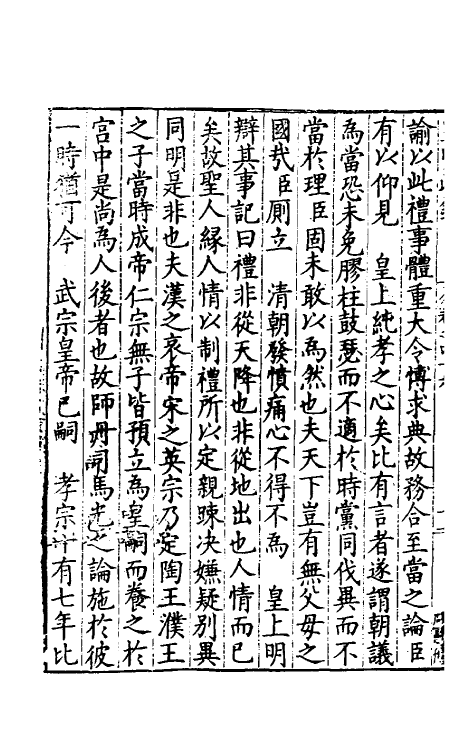 諭以此禮事體重大令博求典故務合至當之論臣
有以仰見　皇上純孝之心矣比有言者遂謂朝議
為當恐未免膠柱鼓瑟而不適於時黨同伐異而不
當於理臣固未敢以為然也夫天下豈有無父母之
國哉臣厠立　清朝發憤痛心不得不為　皇上明
辯其事記曰禮非從天降也非從地出也人情而已
矣故聖人緣人情以制禮所以定親踈决嫌疑别異
同明是非也夫漢之哀帝宋之英宗乃定陶王濮王
之子當時成帝仁宗無子皆預立為皇嗣而養之於
宫中是尚為人後者也故師丹司馬光之論施於彼
一時猶可今　武宗皇帝已嗣　孝宗十有七年比